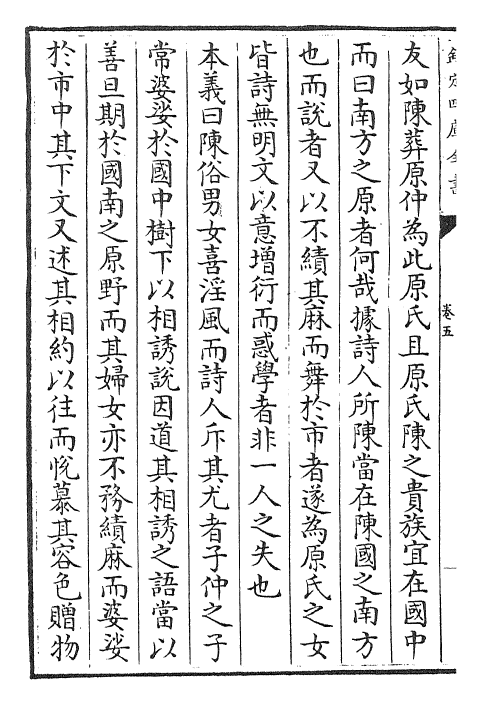 欽定四庫全書
卷五
友如陳葬原仲為此原氏且原氏陳之貴族宜在國中
而曰南方之原者何哉據詩人所陳當在陳國之南方
也而說者又以不績其麻而舞於市者遂為原氏之女
皆詩無明文以意增衍而惑學者非一人之失也
本義曰陳俗男女喜淫風而詩人斥其尤者子仲之子
常婆娑於國中樹下以相誘說因道其相誘之語當以
善旦期於國南之原野而其婦女亦不務績麻而婆娑
於市中其下文又述其相約以往而悅慕其容色贈物